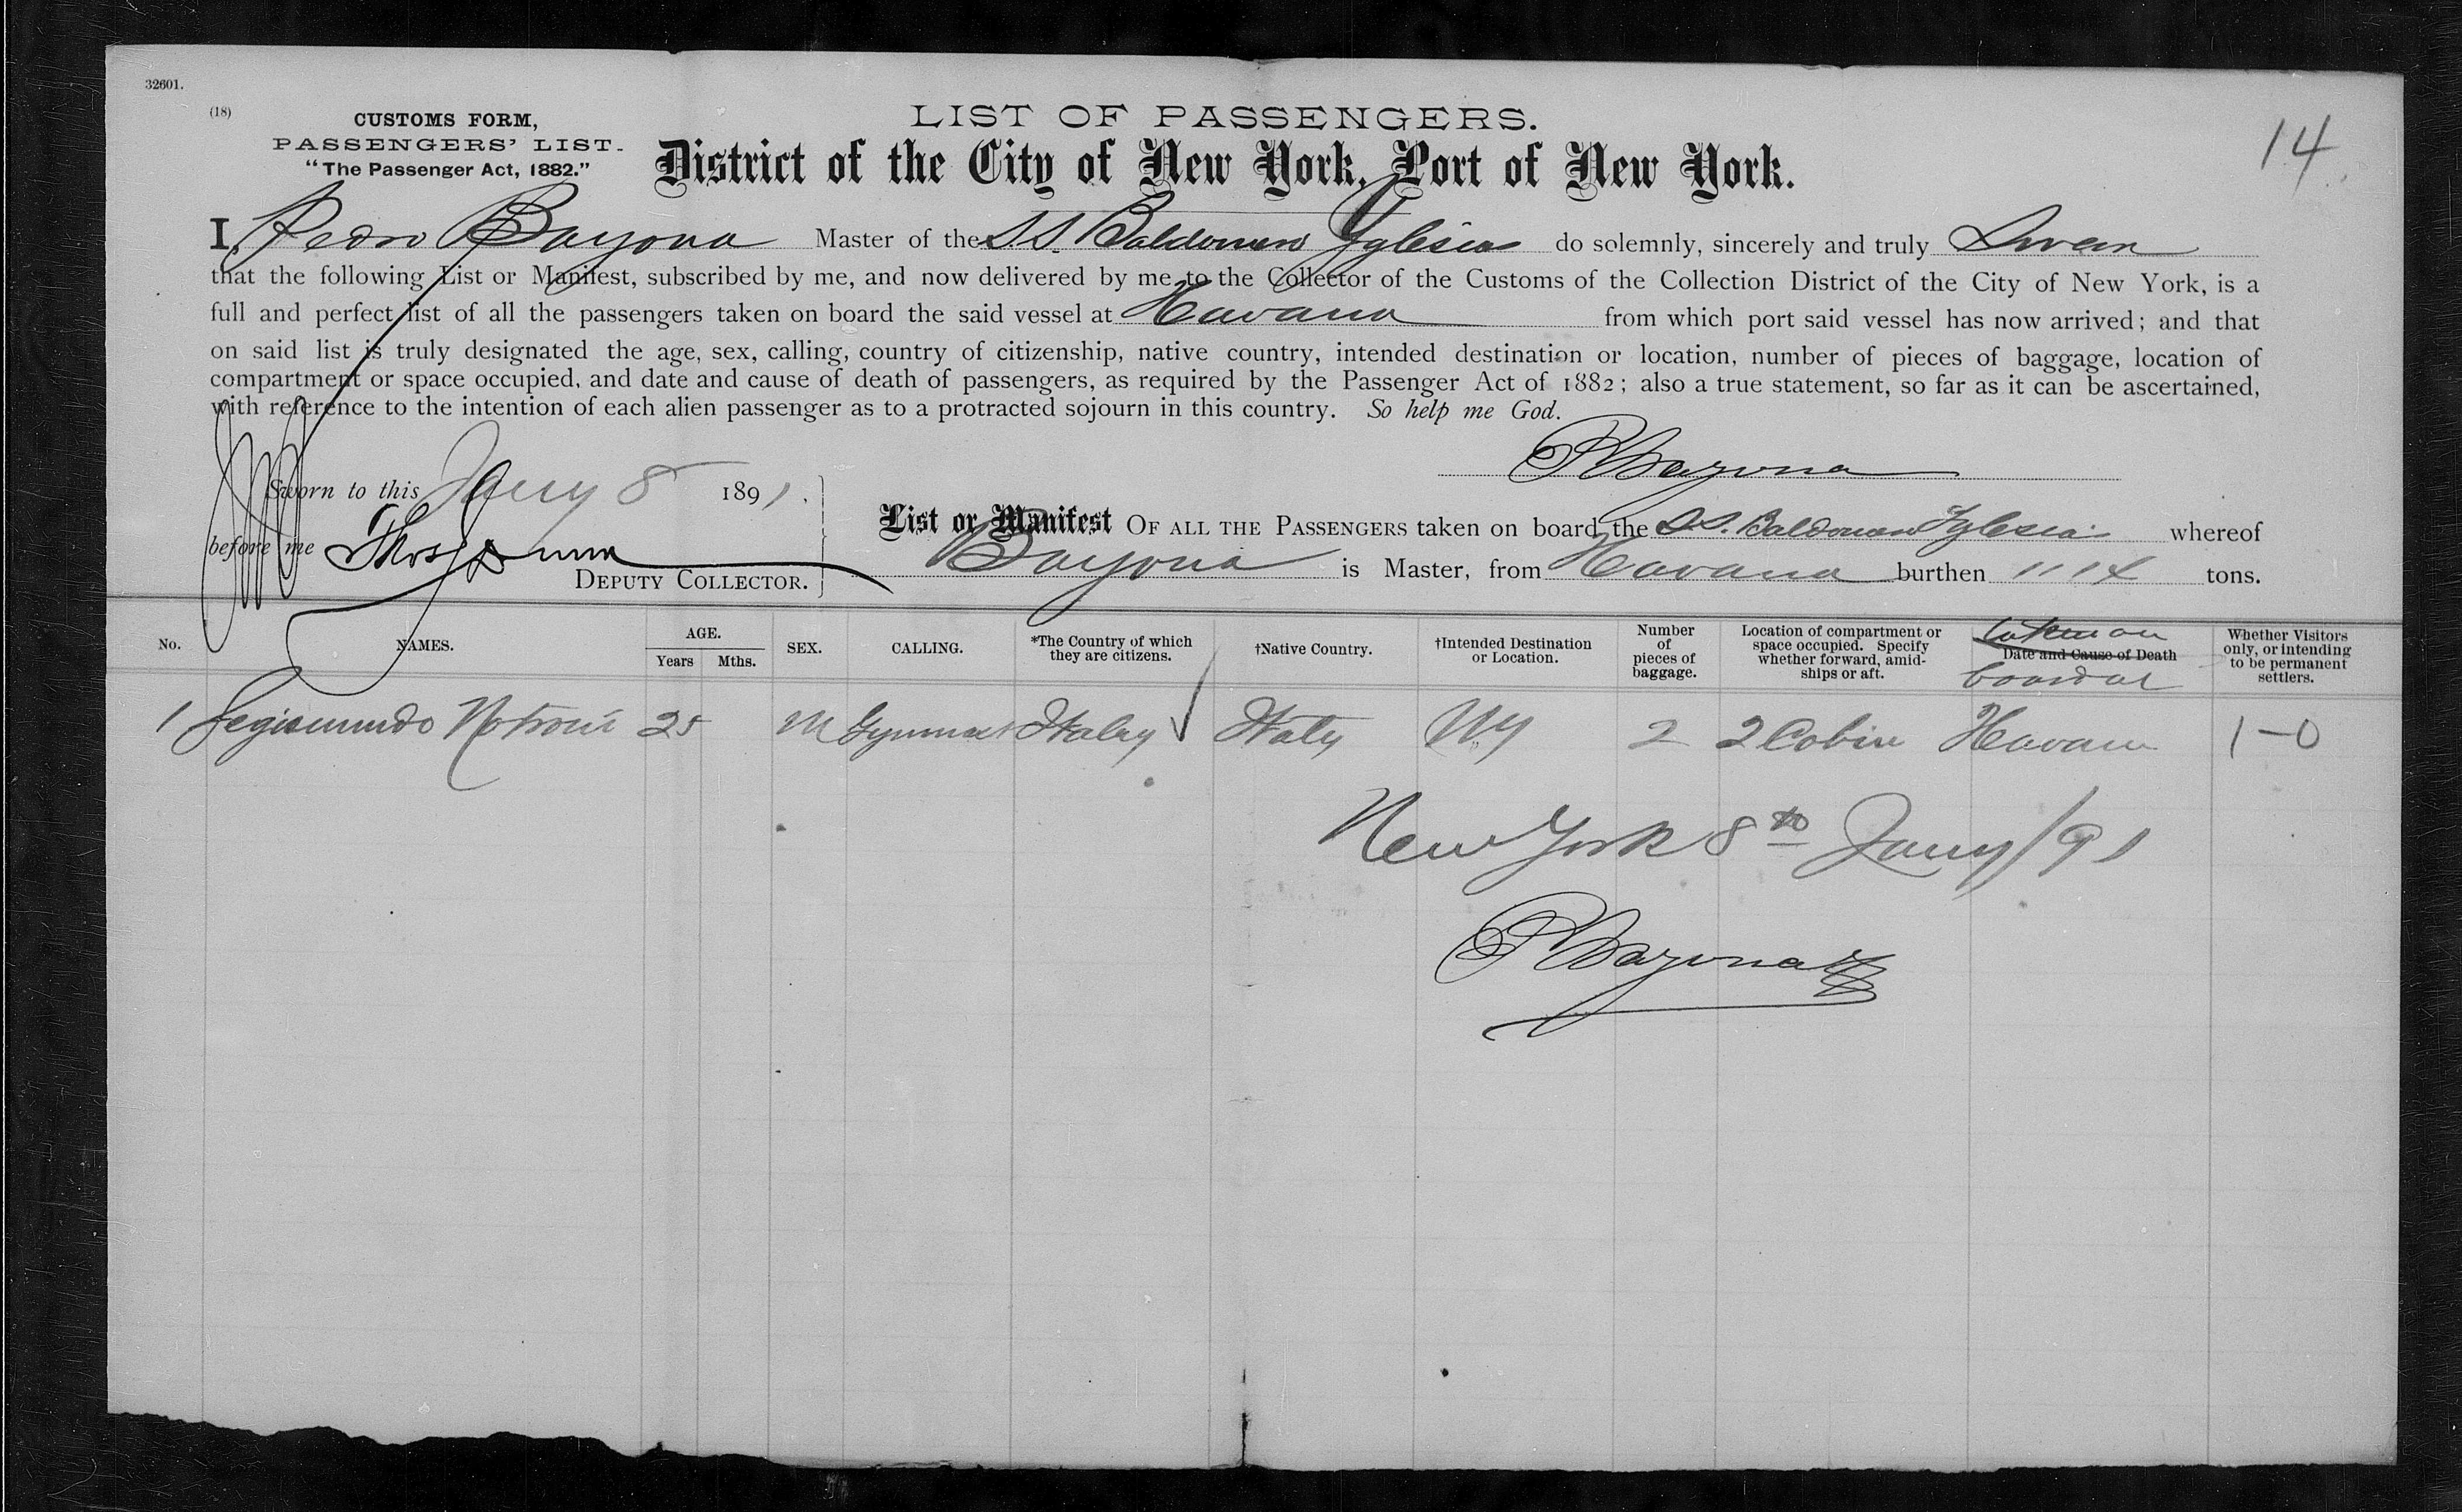 32601.
(18)
CUSTOMS FORM,
PASSENGERS' LIST.
"The Passenger Act, 1882."
LIST OF PASSENGERS.
District of the City of New York, Port of New York.
14
I, Pedro Bayona Master of the S.S. Baldomero Yglesias do solemnly, sincerely and truly Swear
that the following List or Manifest, subscribed by me, and now delivered by me to the Collector of the Customs of the Collection District of the City of New York, is a
full and perfect list of all the passengers taken on board the said vessel at Havana from which port said vessel has now arrived; and that
on said list is truly designated the age, sex, calling, country of citizenship, native country, intended destination or location, number of pieces of baggage, location of
compartment or space occupied, and date and cause of death of passengers, as required by the Passenger Act of 1882; also a true statement, so far as it can be ascertained,
with reference to the intention of each alien passenger as to a protracted sojourn in this country. So help me God.
PBayona
Sworn to this Jany 8 1891.
before me Thos
DEPUTY COLLECTOR.
List or Manifest OF ALL THE PASSENGERS taken on board the S.S. Baldomero Yglesias whereof
Bayona is Master, from Havana burthen 1114 tons.
No. NAMES. AGE. Years Mths. SEX. CALLING. *The Country of which they are citizens. †Native Country. †Intended Destination or Location. Number of pieces of baggage. Location of compartment or space occupied. Specify whether forward, amidships or aft. Date and Cause of Death taken on board at Whether Visitors only, or intending to be permanent settlers.
1 Segismundo 25 M Gymnast Italy Italy NY 2 2 Cabin Havana 1-0
New York 8th Jany/91
PBayona